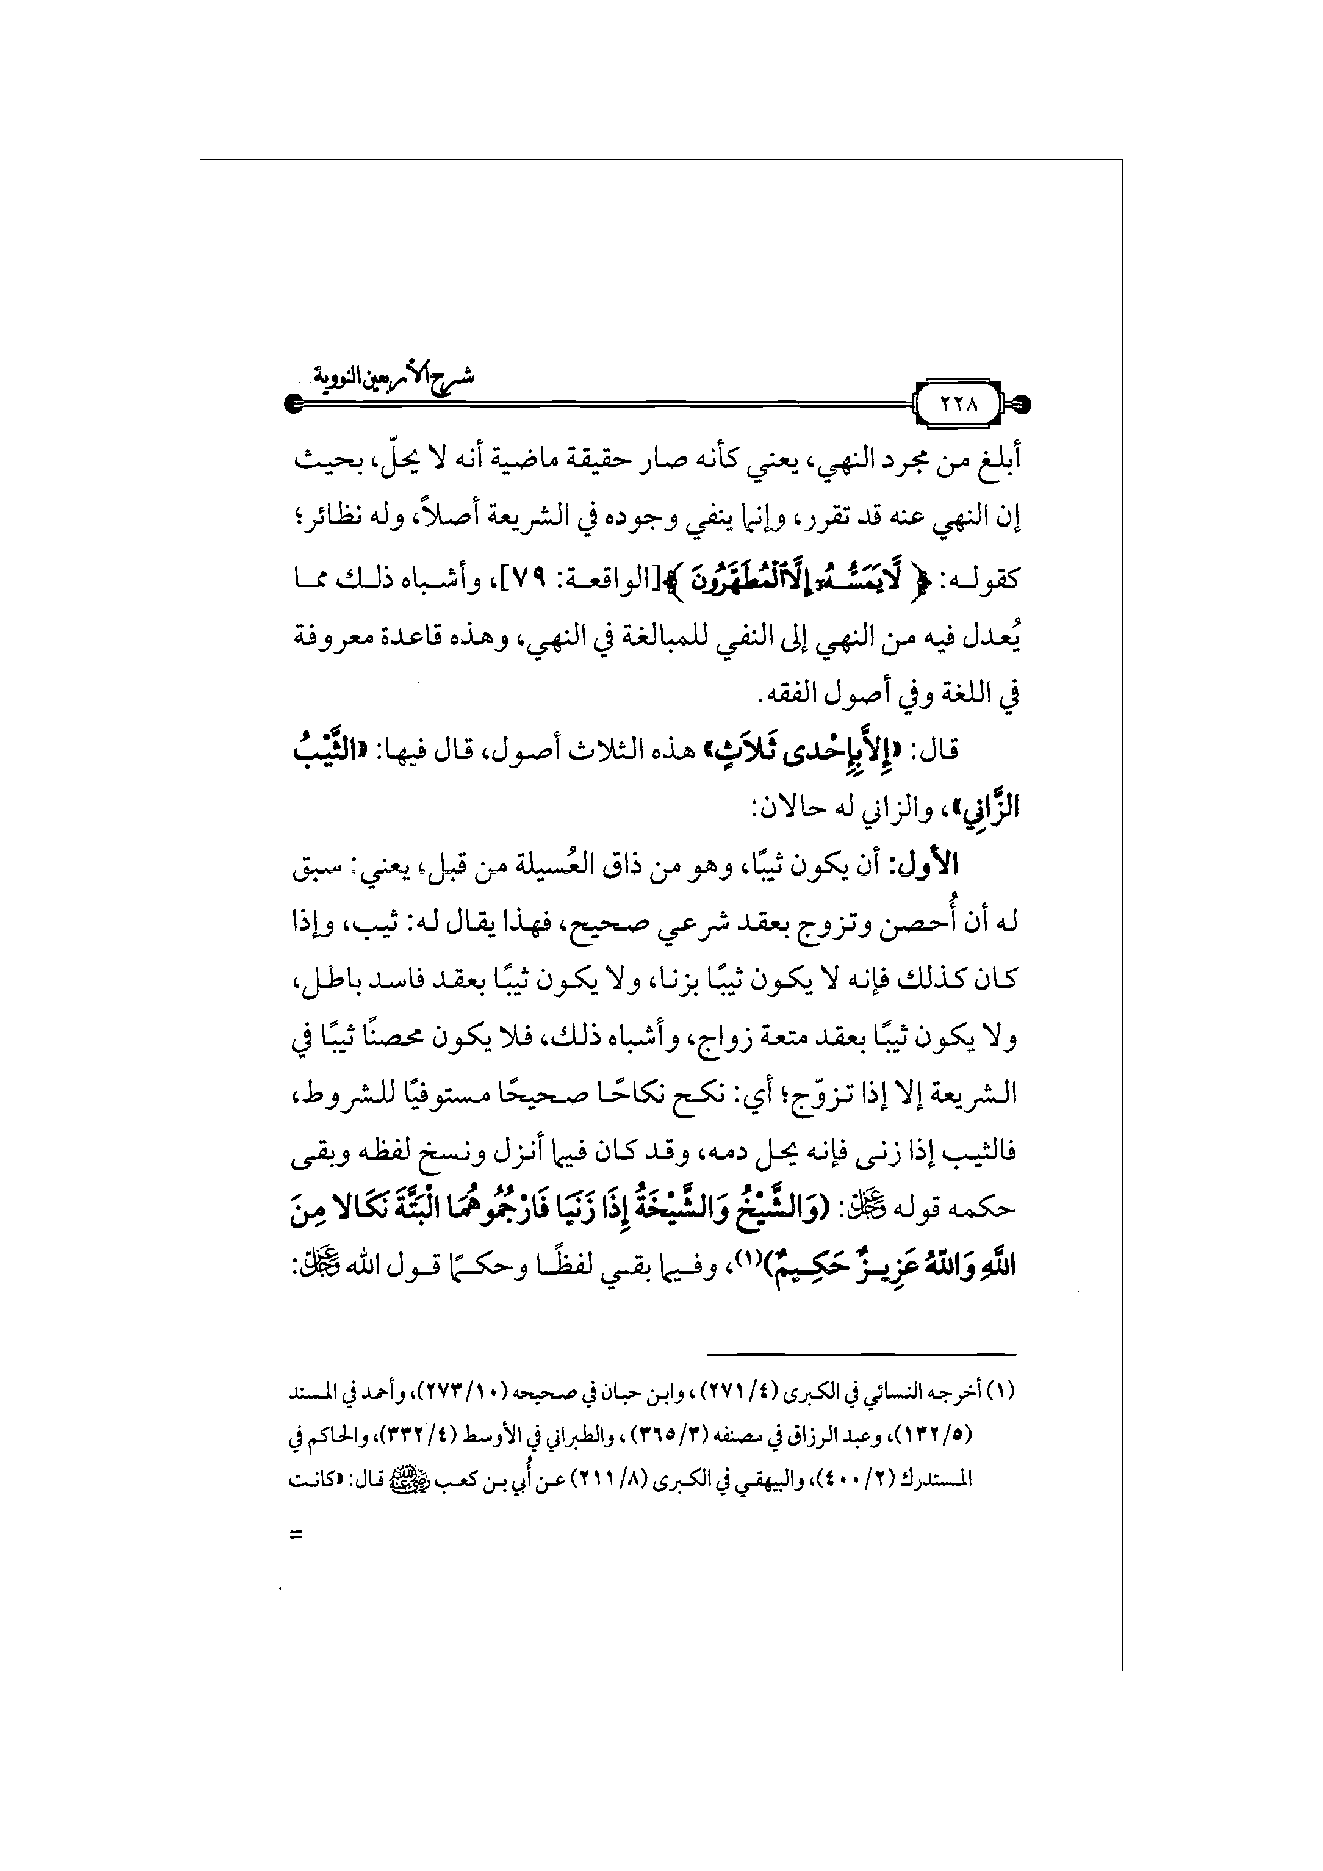 شرح الأربعين النووية
٢٢٨
أبلغ من مجرد النهي، يعني كأنه صار حقيقة ماضية أنه لا يحلّ، بحيث
إن النهي عنه قد تقرر، وإنما ينفي وجوده في الشريعة أصلاً، وله نظائر؛
كقوله: ﴿ لَّا يَمَسُّهُۥٓ إِلَّا ٱلْمُطَهَّرُونَ ﴾[الواقعة: ٧٩]، وأشباه ذلك مما
يُعدل فيه من النهي إلى النفي للمبالغة في النهي، وهذه قاعدة معروفة
في اللغة وفي أصول الفقه.
قال: «إِلاَّ بِإِحْدى ثَلاَثٍ» هذه الثلاث أصول، قال فيها: «الثَّيِّبُ
الزَّانِي»، والزاني له حالان:
الأول: أن يكون ثيبًا، وهو من ذاق العُسيلة من قبل، يعني: سبق
له أن أُحصن وتزوج بعقد شرعي صحيح، فهذا يقال له: ثيب، وإذا
كان كذلك فإنه لا يكون ثيبًا بزنا، ولا يكون ثيبًا بعقد فاسد باطل،
ولا يكون ثيبًا بعقد متعة زواج، وأشباه ذلك، فلا يكون محصنًا ثيبًا في
الشريعة إلا إذا تزوّج؛ أي: نكح نكاحًا صحيحًا مستوفيًا للشروط،
فالثيب إذا زنى فإنه يحل دمه، وقد كان فيما أنزل ونسخ لفظه وبقى
حكمه قوله ﷻ: (وَالشَّيْخُ وَالشَّيْخَةُ إِذَا زَنَيَا فَارْجُمُوهُمَا الْبَتَّةَ نَكَالا مِنَ
اللَّهِ وَاللهُ عَزِيزٌ حَكِيمٌ)(١)، وفيما بقي لفظًا وحكمًا قول الله ﷻ:
(١) أخرجه النسائي في الكبرى (٤/ ٢٧١)، وابن حبان في صحيحه (١٠/ ٢٧٣)، وأحمد في المسند
(٥/ ١٣٢)، وعبد الرزاق في مصنفه (٣/ ٣٦٥)، والطبراني في الأوسط (٤/ ٣٣٢)، والحاكم في
المستدرك (٢/ ٤٠٠)، والبيهقي في الكبرى (٨/ ٢١١) عن أُبي بن كعب رضي الله عنه قال: «كانت
=